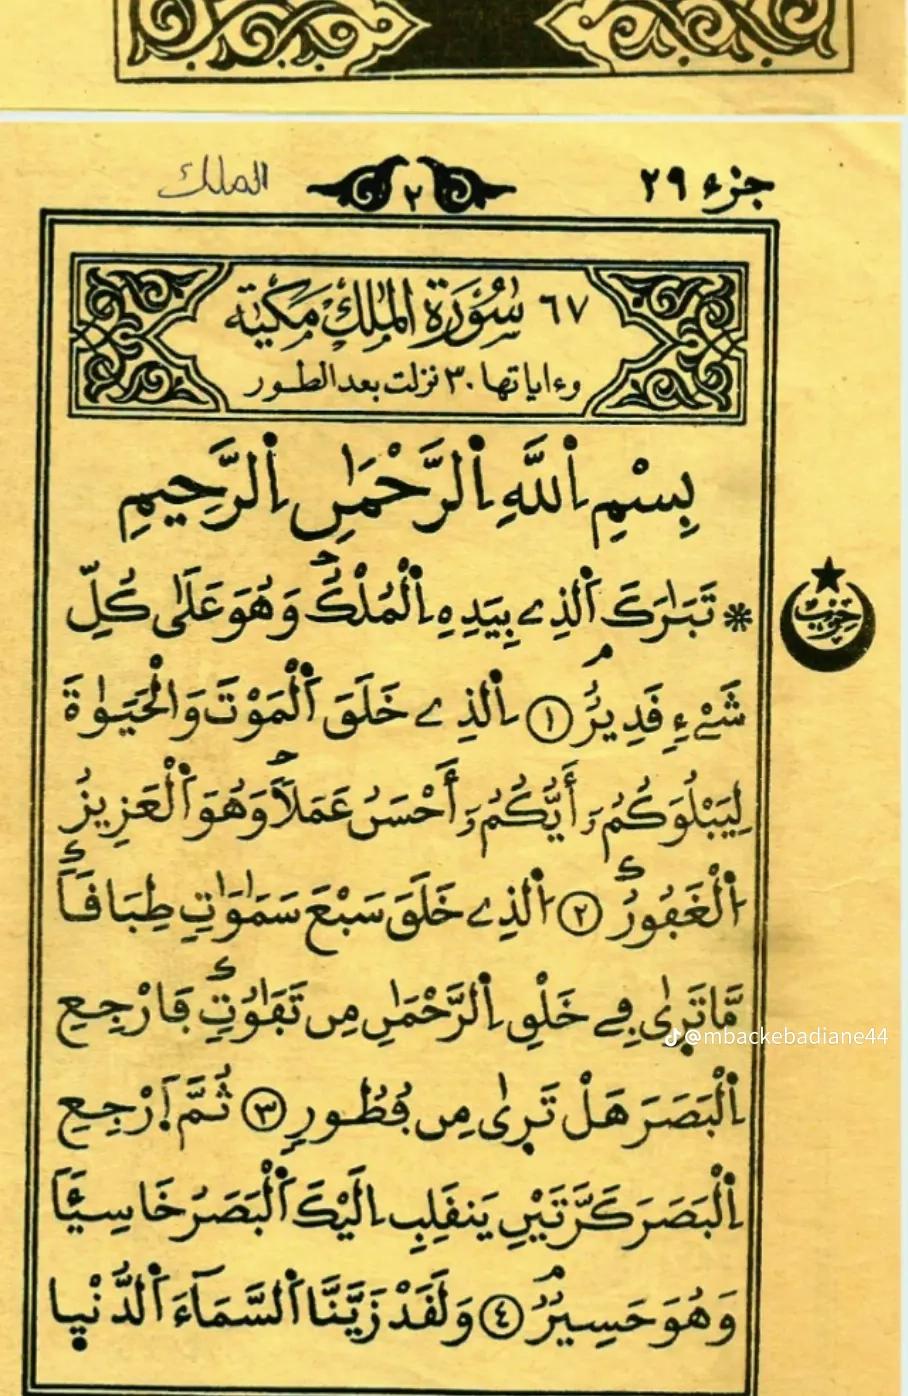 جزء ٢٩
٢
الملك
٦٧ سُورَةُ المُلك مَكيّة
وءاياتها ٣٠ نزلت بعد الطور
بِسْمِ اِ۬للَّهِ اِ۬لرَّحْمَٰنِ اِ۬لرَّحِيمِ
تَبَٰرَكَ اَ۬لذِے بِيَدِهِ اِ۬لْمُلْكُ وَهُوَ عَلَىٰ كُلِّ
حزب
شَےْءٖ قَدِيرٌ ١ اِ۬لذِے خَلَقَ اَ۬لْمَوْتَ وَالْحَيَوٰةَ
لِيَبْلُوَكُمُۥٓ أَيُّكُمُۥٓ أَحْسَنُ عَمَلاٗ وَهُوَ اَ۬لْعَزِيزُ
اُ۬لْغَفُورُ ٢ اُ۬لذِے خَلَقَ سَبْعَ سَمَٰوَٰتٖ طِبَاقاٗ
مَّا تَرٜىٰ فِے خَلْقِ اِ۬لرَّحْمَٰنِ مِن تَفَٰوُتٖ فَارْجِعِ
@mbackebadiane44
اِ۬لْبَصَرَ هَلْ تَرٜىٰ مِن فُطُورٖ ٣ ثُمَّ اَ۪رْجِعِ
اِ۬لْبَصَرَ كَرَّتَيْنِ يَنقَلِبِ اِلَيْكَ اَ۬لْبَصَرُ خَاسِئاٗ
وَهُوَ حَسِيرٌ ٤ وَلَقَدْ زَيَّنَّا اَ۬لسَّمَآءَ اَ۬لدُّنْيٜا